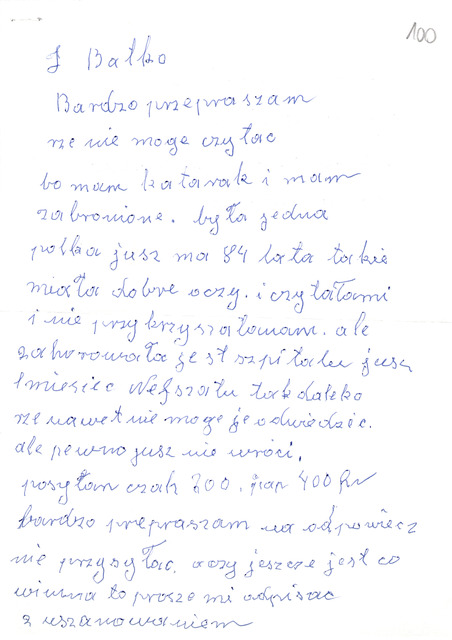 100
J Bałko
Bardzo przepraszam
rze nie moge czytac
bo mam katarak i mam
zabronione. była jedna
polka jusz ma 84 lata takie
miała dobre oczy. i czytałami
i nie przykrzyszałamam. ale
zahorowała jest szpitalu jusz
1 miesiec Wefszału tak daleko
rze nawet nie moge je odwiedzic.
ale pewno jusz nie wróci.
posyłam czak 200. 400 fr
bardzo prepraszam na odpowiecz
nie przysyłac. czy jeszcze jest co
winna to prosze mi odpisac
z uszanowaniem